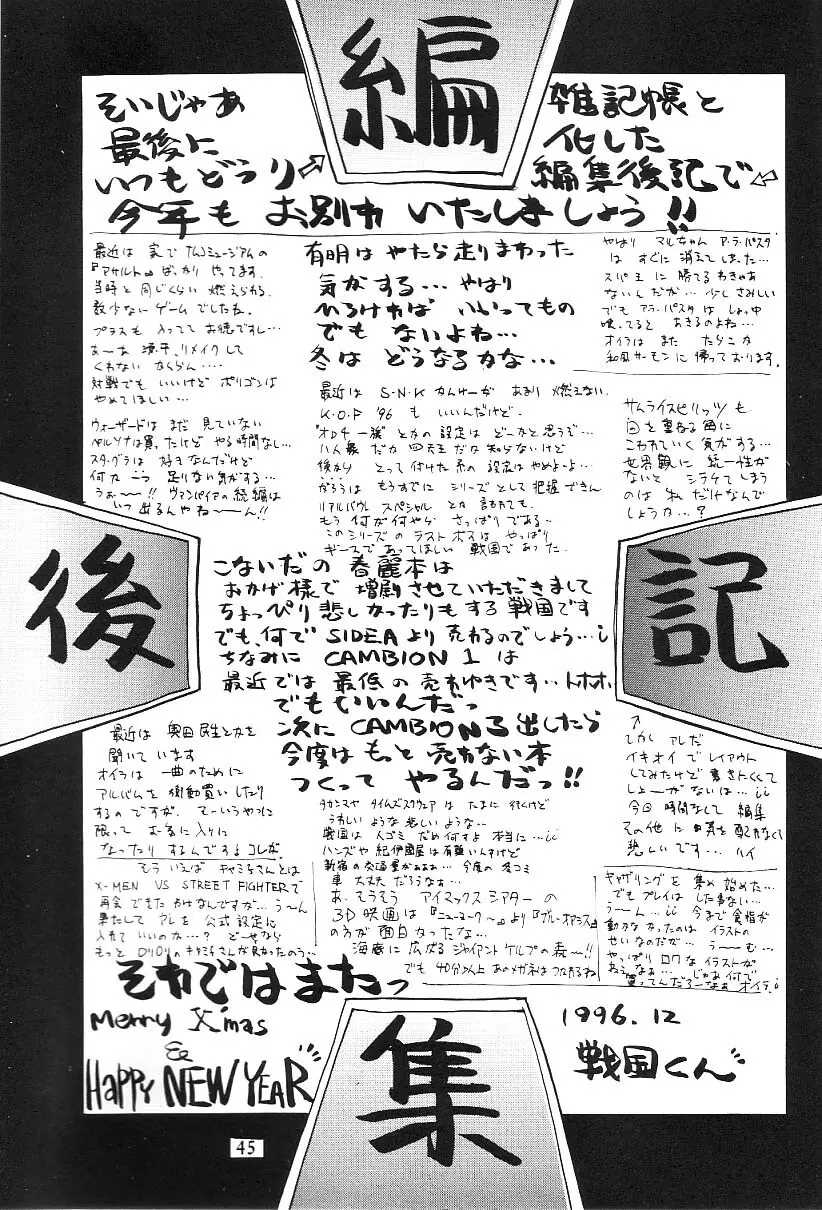 編集後記
そいじゃあ
最後に
いつもどうり
雑記帳と
化した
編集後記で
今年も お別れ いたしましょう!!
最近は 家で ナムコミュージアムの
『アサルト』ばっかり やってます。
当時と 同じくらい 燃えられる
数少ない ゲームでしたね。
プラスも 入ってて お徳ですし…
あーあ 源平、リメイクして
くれない ならん‥‥
対戦でも いいけど ポリゴンは
やめてほしい…
ウィザードは まだ 見ていない
ペルソナは買ったけど やる時間なし…
スタ・グラは 好き なんだけど
何か 一つ 足りない気がする…
うぉーー!! ヴァンパイアの続編は
いつ 出るんやねーーん!!
有明は やたら走りまわった
気がする… やはり
ひろければ いいってもの
でも ないよね…
冬は どうなるかな…
やはり マルちゃん ア・ラ・パスタ
は すぐに 消えてしまった…
スパ王 に 勝てる わきゃあ
ないんだが… 少し さみしい
でも アラ・パスタは しょっ中
喰ってると あきるのよね…
オイラは また たらこか
和風サーモン に 帰っております。
最近は S-N-K かんけーが あまり 燃えない
K.O.F '96 も いいんだけど。
"オロチ一族" とかの 設定は どーかと思うぞ…
八人衆 だか 四天王 だか 知らないけど
後から とって付けた系の 設定は やめよーよ…
がろうは もうすでに シリーズとして 把握 できん
リアルバウト スペシャル とか 言われても、
もう 何が何やら さっぱりである…
このシリーズ の ラストボスは やっぱり
ギースで あってほしい 戦国であった。
サムライスピリッツ も
回を重ねる毎に
こわれていく 気がする…
世界観に 統一性が
ないと シラケてしまう
のは 私だけなんで
しょうか…?
こないだの 春麗本は
おかげ様で 増刷させていただきまして
ちょっぴり悲しかったりもする戦国です
でも、何で SIDEA より 売れるのでしょう…¡
ちなみに CAMBION 1 は
最近では 最低の 売れゆきです‥トホホ
でもいいんだっ
次に CAMBION 3 出したら
今度は もっと 売れない本
つくって やるんだっ!!
最近は 奥田民生とかを
聞いています
オイラは 一曲のために
アルバムを 衝動買い したり
するのですが、 そーいうやつに
限って お気に入りに
なったり するんですよコレが
そう いえば キャミィさんとは
X-MEN VS STREET FIGHTERで
再会できたわけなしですが… うーん
果たして アレを 公式設定に
入れて いいのか…? どーせなら
もっと ロリロリの キャミィさんが 良かったのう…
タカシマヤ タイムズスクウェアは たまに 行くけど
うれしい ような 悲しい ような‥
戦国は 人ゴミ だめ 何すよ 本当に…¡¡
ハンズや 紀伊國屋は 有難いんすけど
新宿の交通量がぁぁぁ… 今度の 冬コミ
車 大丈夫 だろうなぁ…
あ、そうそう アイマックスシアター の
3D映画は 『ニューヨーク〜』より『ブルーオアシス』
の方が 面白かったな…
海底に 広がる ジャイアントケルプの森ーー!!
でも 40分以上 あのメガネは つかれるね
↑
しかし アレだ
イキオイ で レイアウト
してみたけど 書きにくくて
しょーがないは…¡¡
今回 時間なくて 編集
その他に 日英を 配れなくて
悲しいです… ハイ
ギャザリング を 集め始めた…
でも プレイは した事ない…
うーん…¡¡ 今まで 食指が
動かなかったのは イラストの
せいなのだが… うーむ…
やっぱり ロクな イラストが
ねぇなぁ… じゃあ 何で
買ってんだろーなぁ オイラ¡
それではまたっ
Merry X'mas
&
HAPPY NEW YEAR
1996.12
戦国くん
45